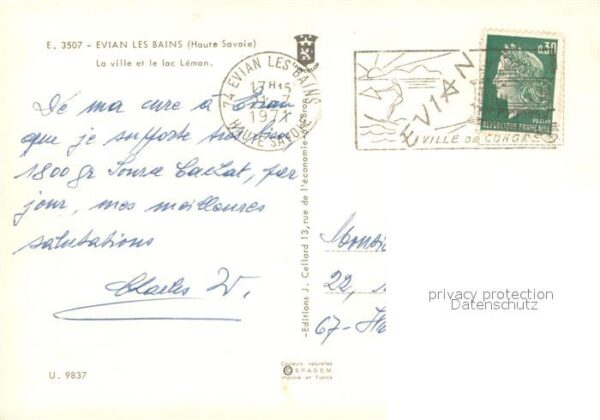 E. 3507 - EVIAN LES BAINS (Haute Savoie)
La ville et le lac Léman.
74 EVIAN LES BAINS
17H15
197
HAUTE SAVOIE
EVIAN
VILLE DE CONGRES
0,30
POSTES
REPUBLIQUE FRANÇAISE
Dé ma cure à Evian
que je supporte très bien
1800 gr Source Cachat, par
jour, mes meilleures
salutations
Charles W.
-Editions J. Cellard 13, rue de l'économie
Monsie
22,
67-H
privacy protection
Datenschutz
Couleurs naturelles
© SPADEM
Imprimé en France
U. 9837